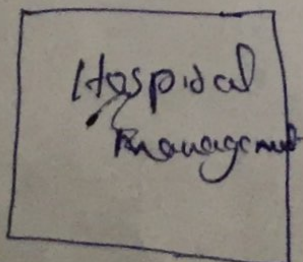 Hospital
Management